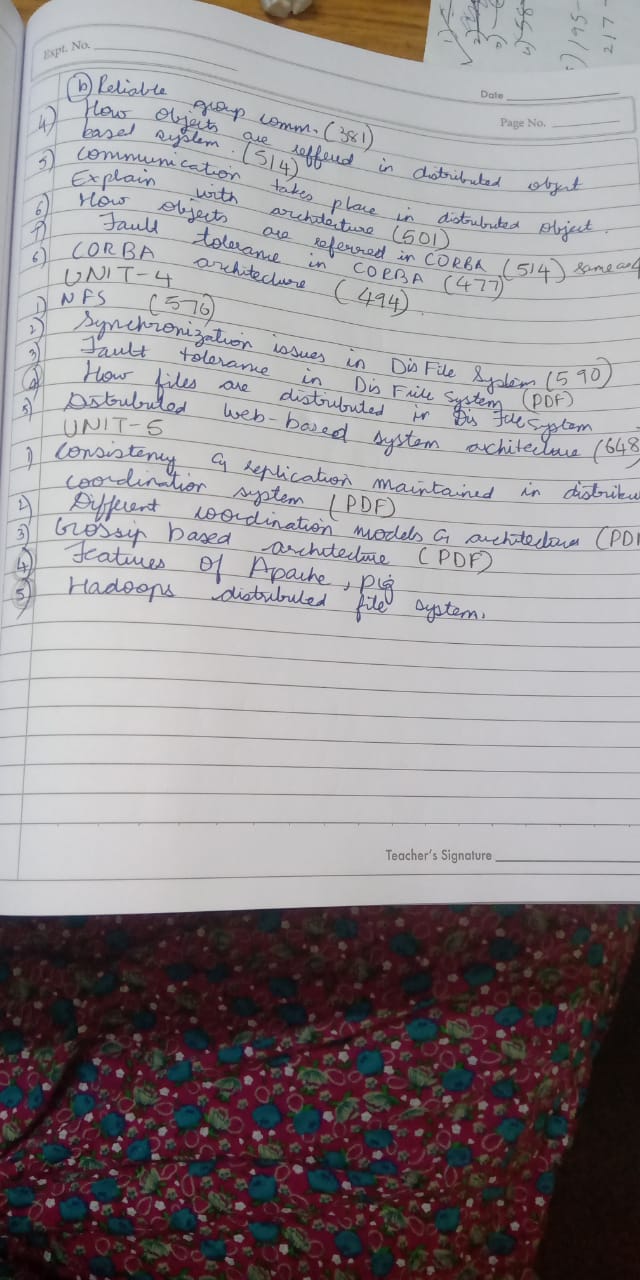 Expt. No.
Date
Page No.
(b) Reliable group comm. (381)
4) How objects are reffered in distributed object
based system. (514)
5) Communication takes place in distributed object.
Explain with architecture (501)
6) How objects are referred in CORBA (514) same as 4
7) Fault tolerance in CORBA (477)
6) CORBA architecture (494).
UNIT-4
1) NFS (576)
2) Synchronization issues in Dis File System (590)
3) Fault tolerance in Dis File System (PDF)
4) How files are distributed in Dis File System
5) Distributed web-based system architecture (648
UNIT-5
1) Consistency & replication maintained in distribu
coordination system (PDF)
2) Different coordination models & architectures (PD
3) Gossip based architecture (PDF)
4) Features of Apache, pig
5) Hadoops distributed file system.
Teacher's Signature
195-
217-